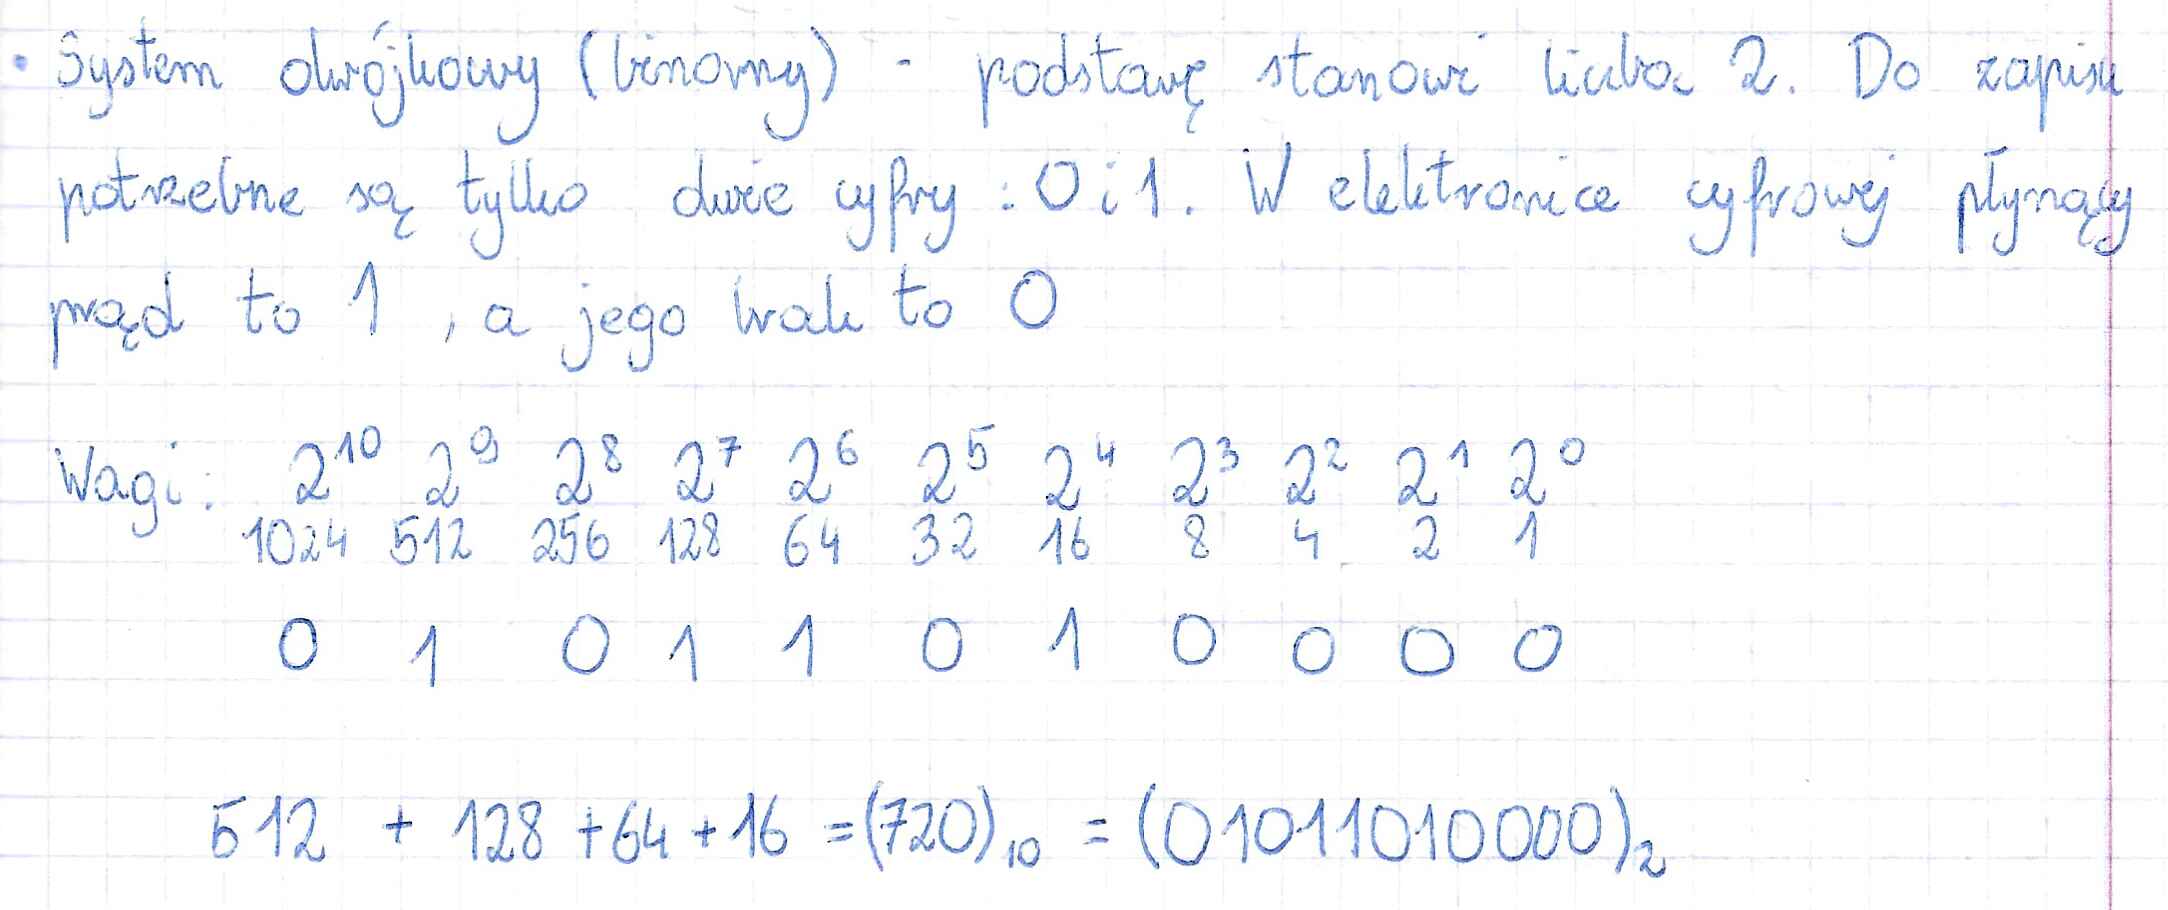 • System dwójkowy (binarny) - podstawę stanowi liczba 2. Do zapisu
potrzebne są tylko dwie cyfry : 0 i 1. W elektronice cyfrowej płynący
prąd to 1 , a jego brak to 0
Wagi: 2¹⁰ 2⁹ 2⁸ 2⁷ 2⁶ 2⁵ 2⁴ 2³ 2² 2¹ 2⁰
1024 512 256 128 64 32 16 8 4 2 1
0 1 0 1 1 0 1 0 0 0 0
512 + 128 + 64 + 16 = (720)₁₀ = (01011010000)₂